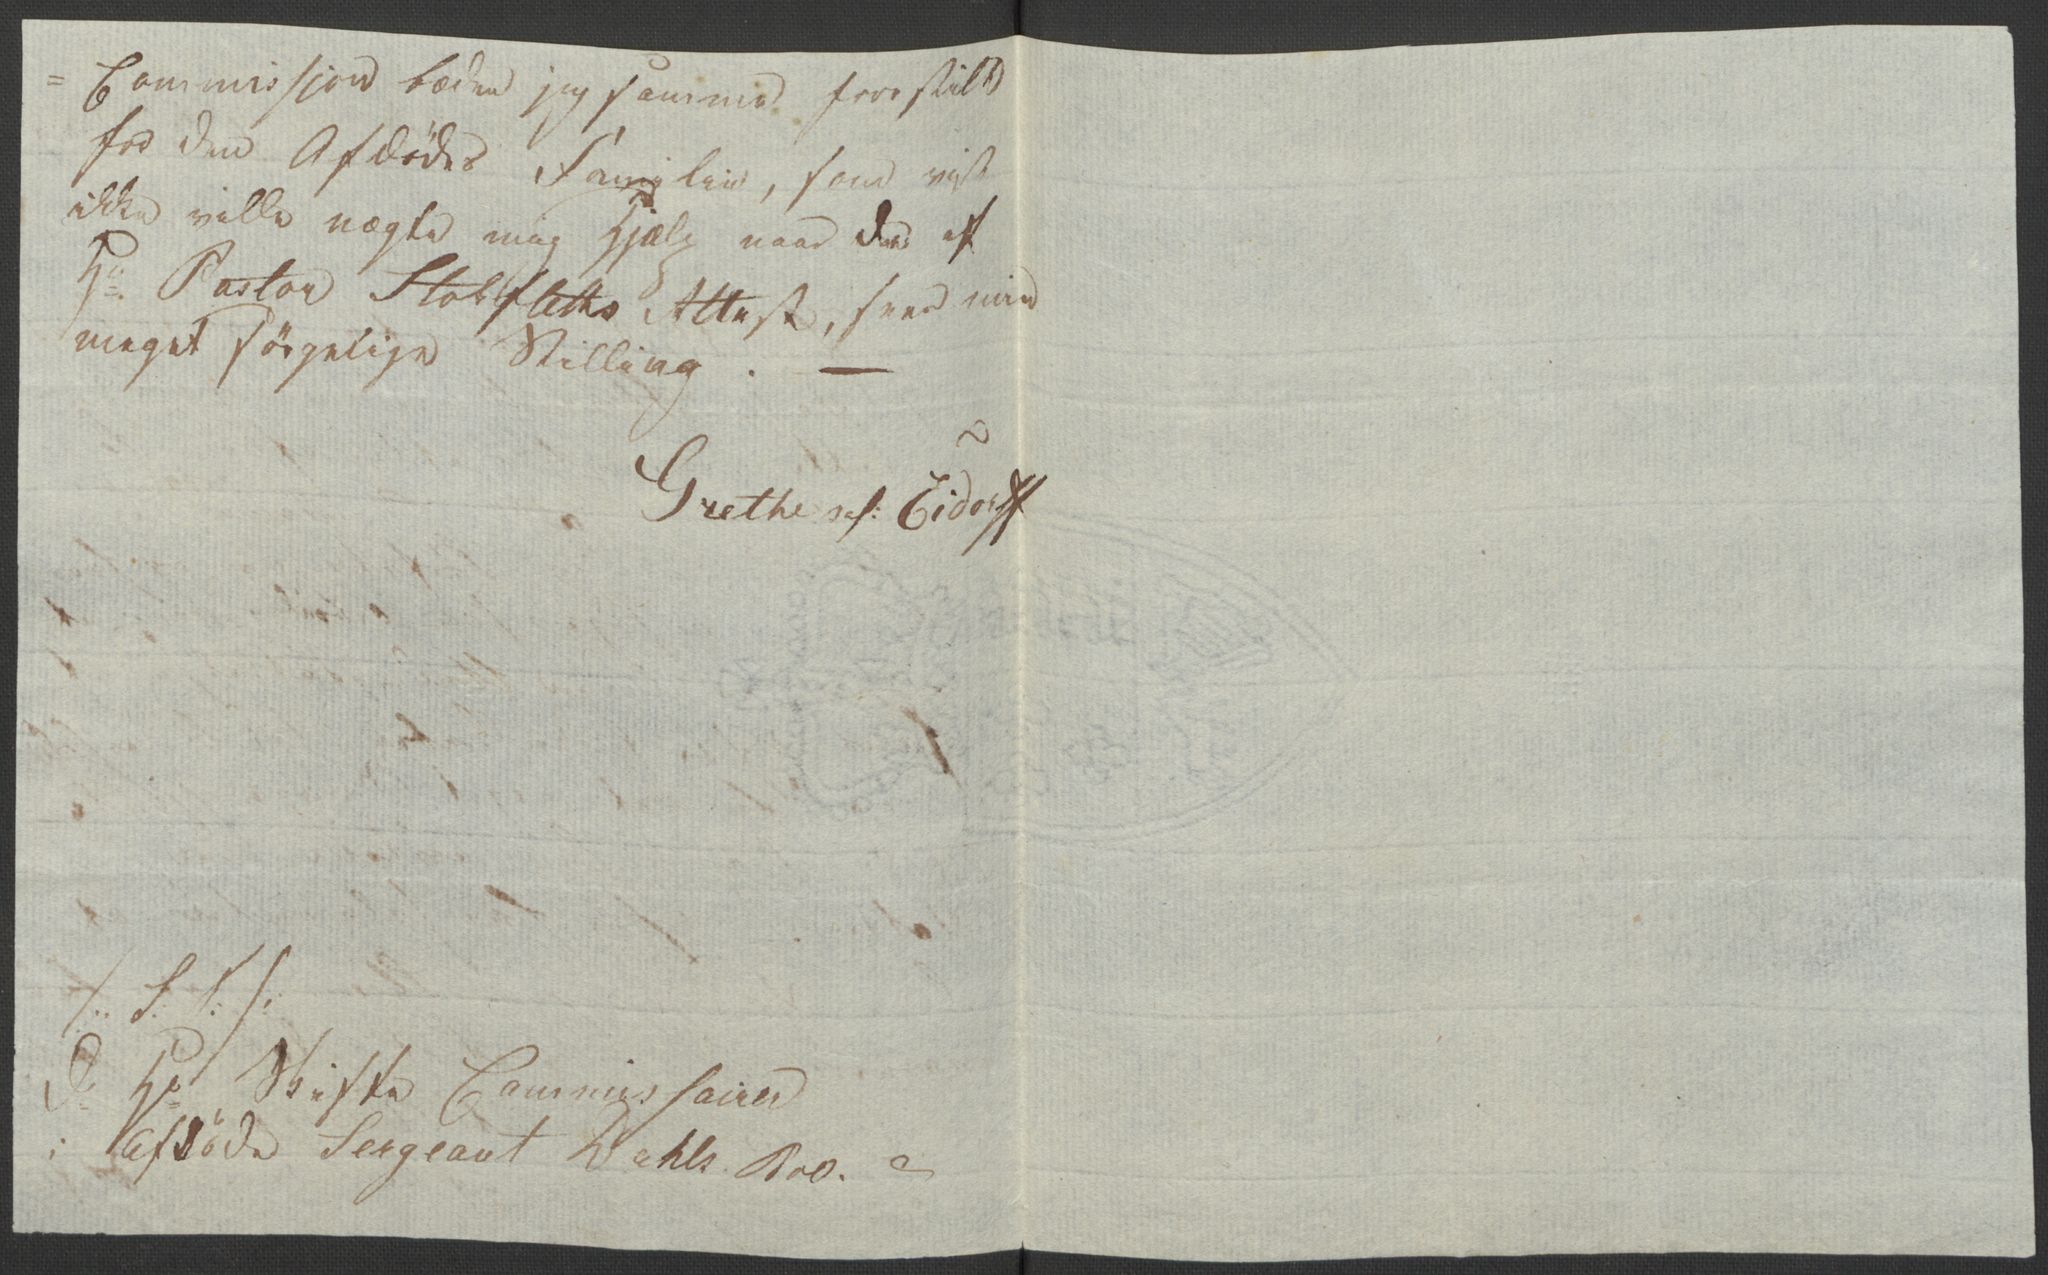 = Commissjon beder jeg samme forestilt
for den Afdödes Familie, som vist
ikke ville nægte mig Hjælp naar der af
Hr. Pastor Stokfleths Attest, sees min
meget sörgelige Stilling. —
Grethe sal: Eidorff
/: S: T: /:
D. Hr. Skifte Commissairer
i Afdöde Sergeant Dahls Boe.